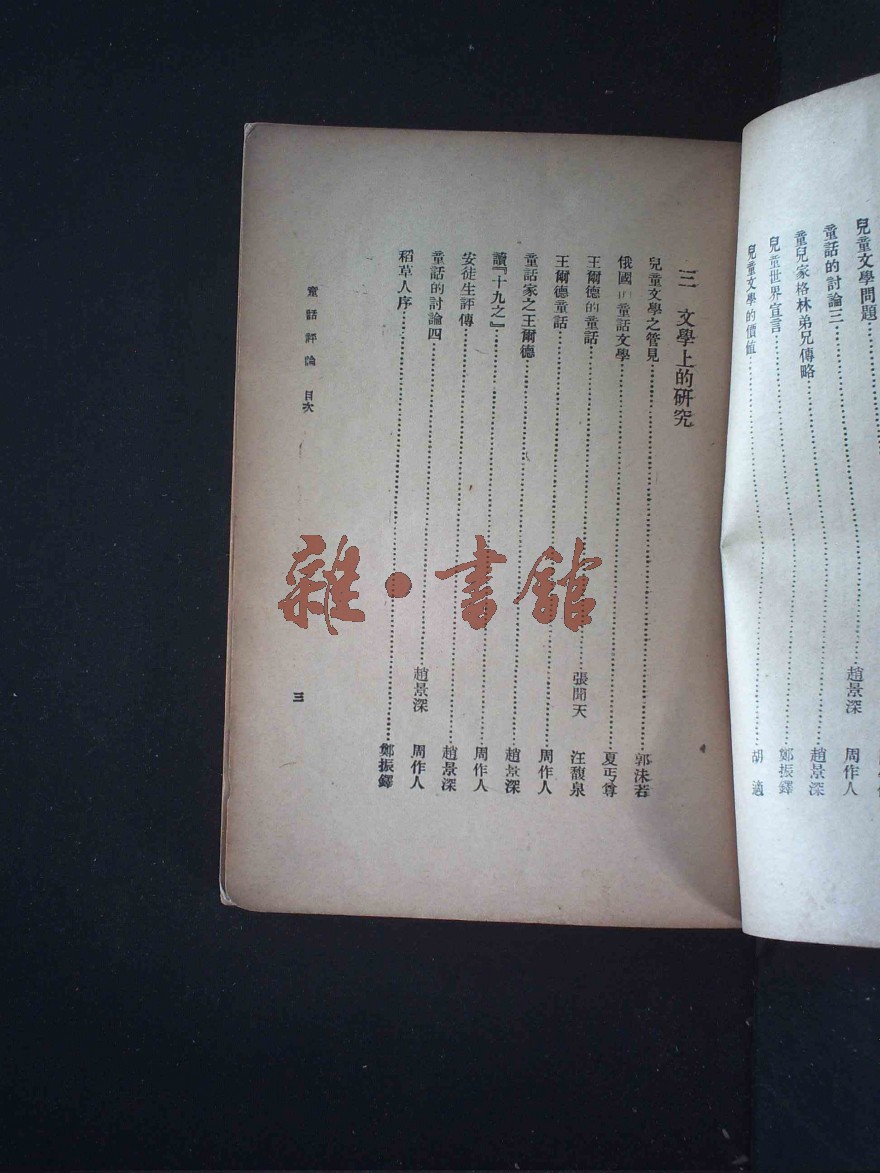 兒童文學問題
童話的討論三……趙景深 周作人
童兒家格林弟兄傳略……趙景深
兒童世界宣言……鄭振鐸
兒童文學的價値……胡適
三 文學上的研究
兒童文學之管見……郭沫若
俄國 童話文學……夏丏尊
王爾德的童話……張聞天 汪馥泉
王爾德童話……周作人
童話家之王爾德……趙景深
讀『十九之』……周作人
安徒生評傳……趙景深
童話的討論四……趙景深 周作人
稻草人序……鄭振鐸
童話評論 目次
三
雜·書館